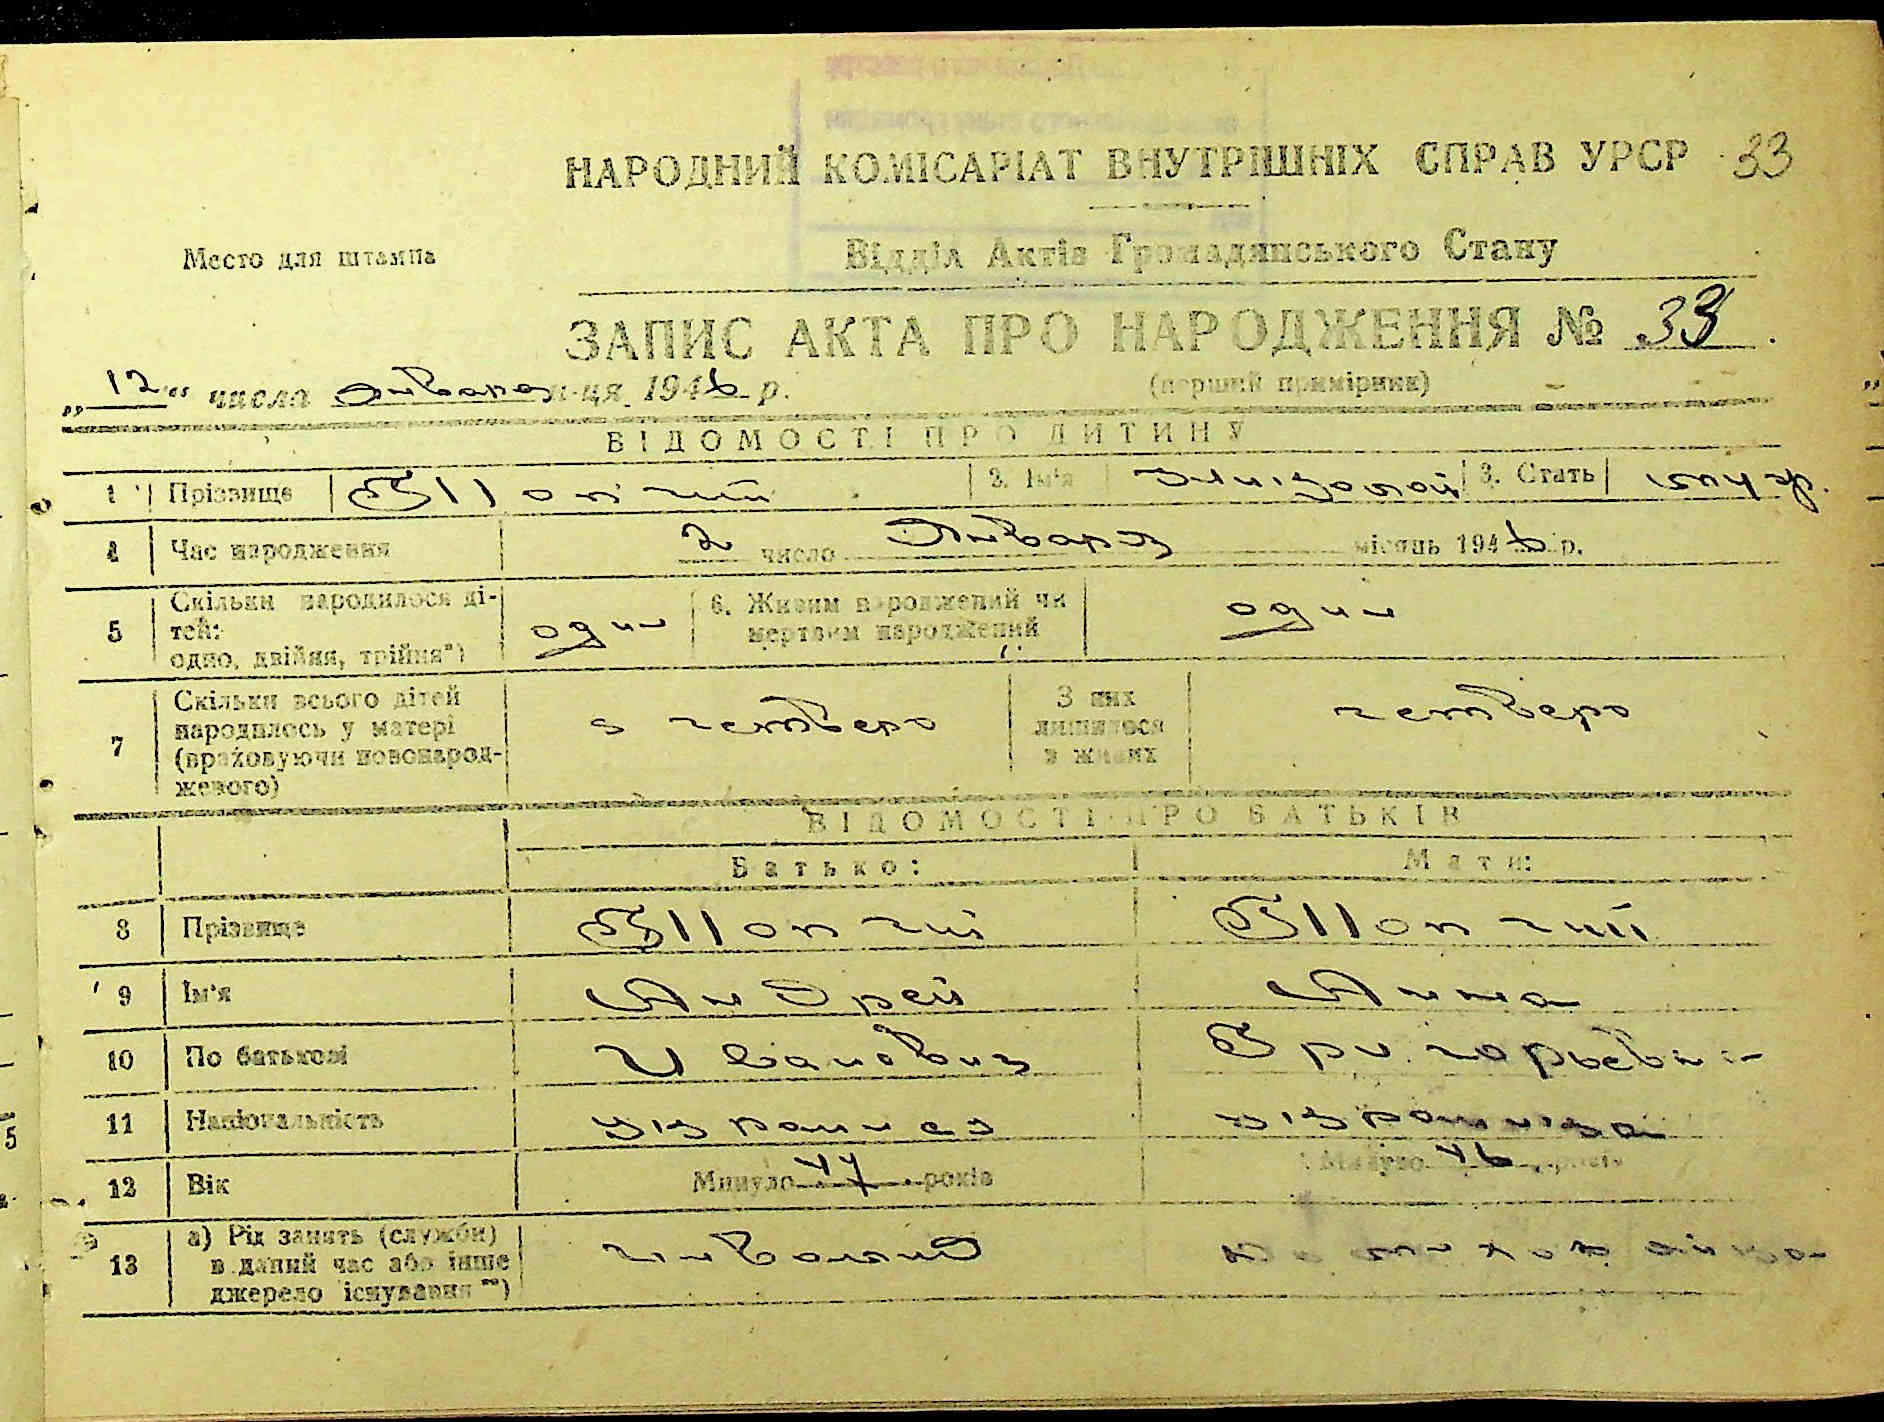 НАРОДНИЙ КОМІСАРІАТ ВНУТРІШНІХ СПРАВ УРСР 33
Место для штампа
Відділ Актів Громадянського Стану
ЗАПИС АКТА ПРО НАРОДЖЕННЯ № 33.
„12" числа Января м-ця 1946 р. (перший примірник)
ВІДОМОСТІ ПРО ДИТИНУ
1 Прізвище 2. Ім'я Николай 3. Стать муж.
4 Час народження 2 число Января місяць 1946 р.
5 Скільки народилося ді-
тей:
одно, двійня, трійня*) один 6. Живим народжений чи
мертвим народжений один
7 Скільки всього дітей
народилось у матері
(враховуючи новонарод-
женого) четверо З них
лишилося
в живих четверо
ВІДОМОСТІ ПРО БАТЬКІВ
Батько: Мати:
8 Прізвище
9 Ім'я Андрей Анна
10 По батькові Иванович Григорьевна
11 Національність украинец украинка
12 Вік Минуло 44 років Минуло 46 років
13 а) Рід занять (служби)
в даний час або інше
джерело існування**) инвалид домохозяйка